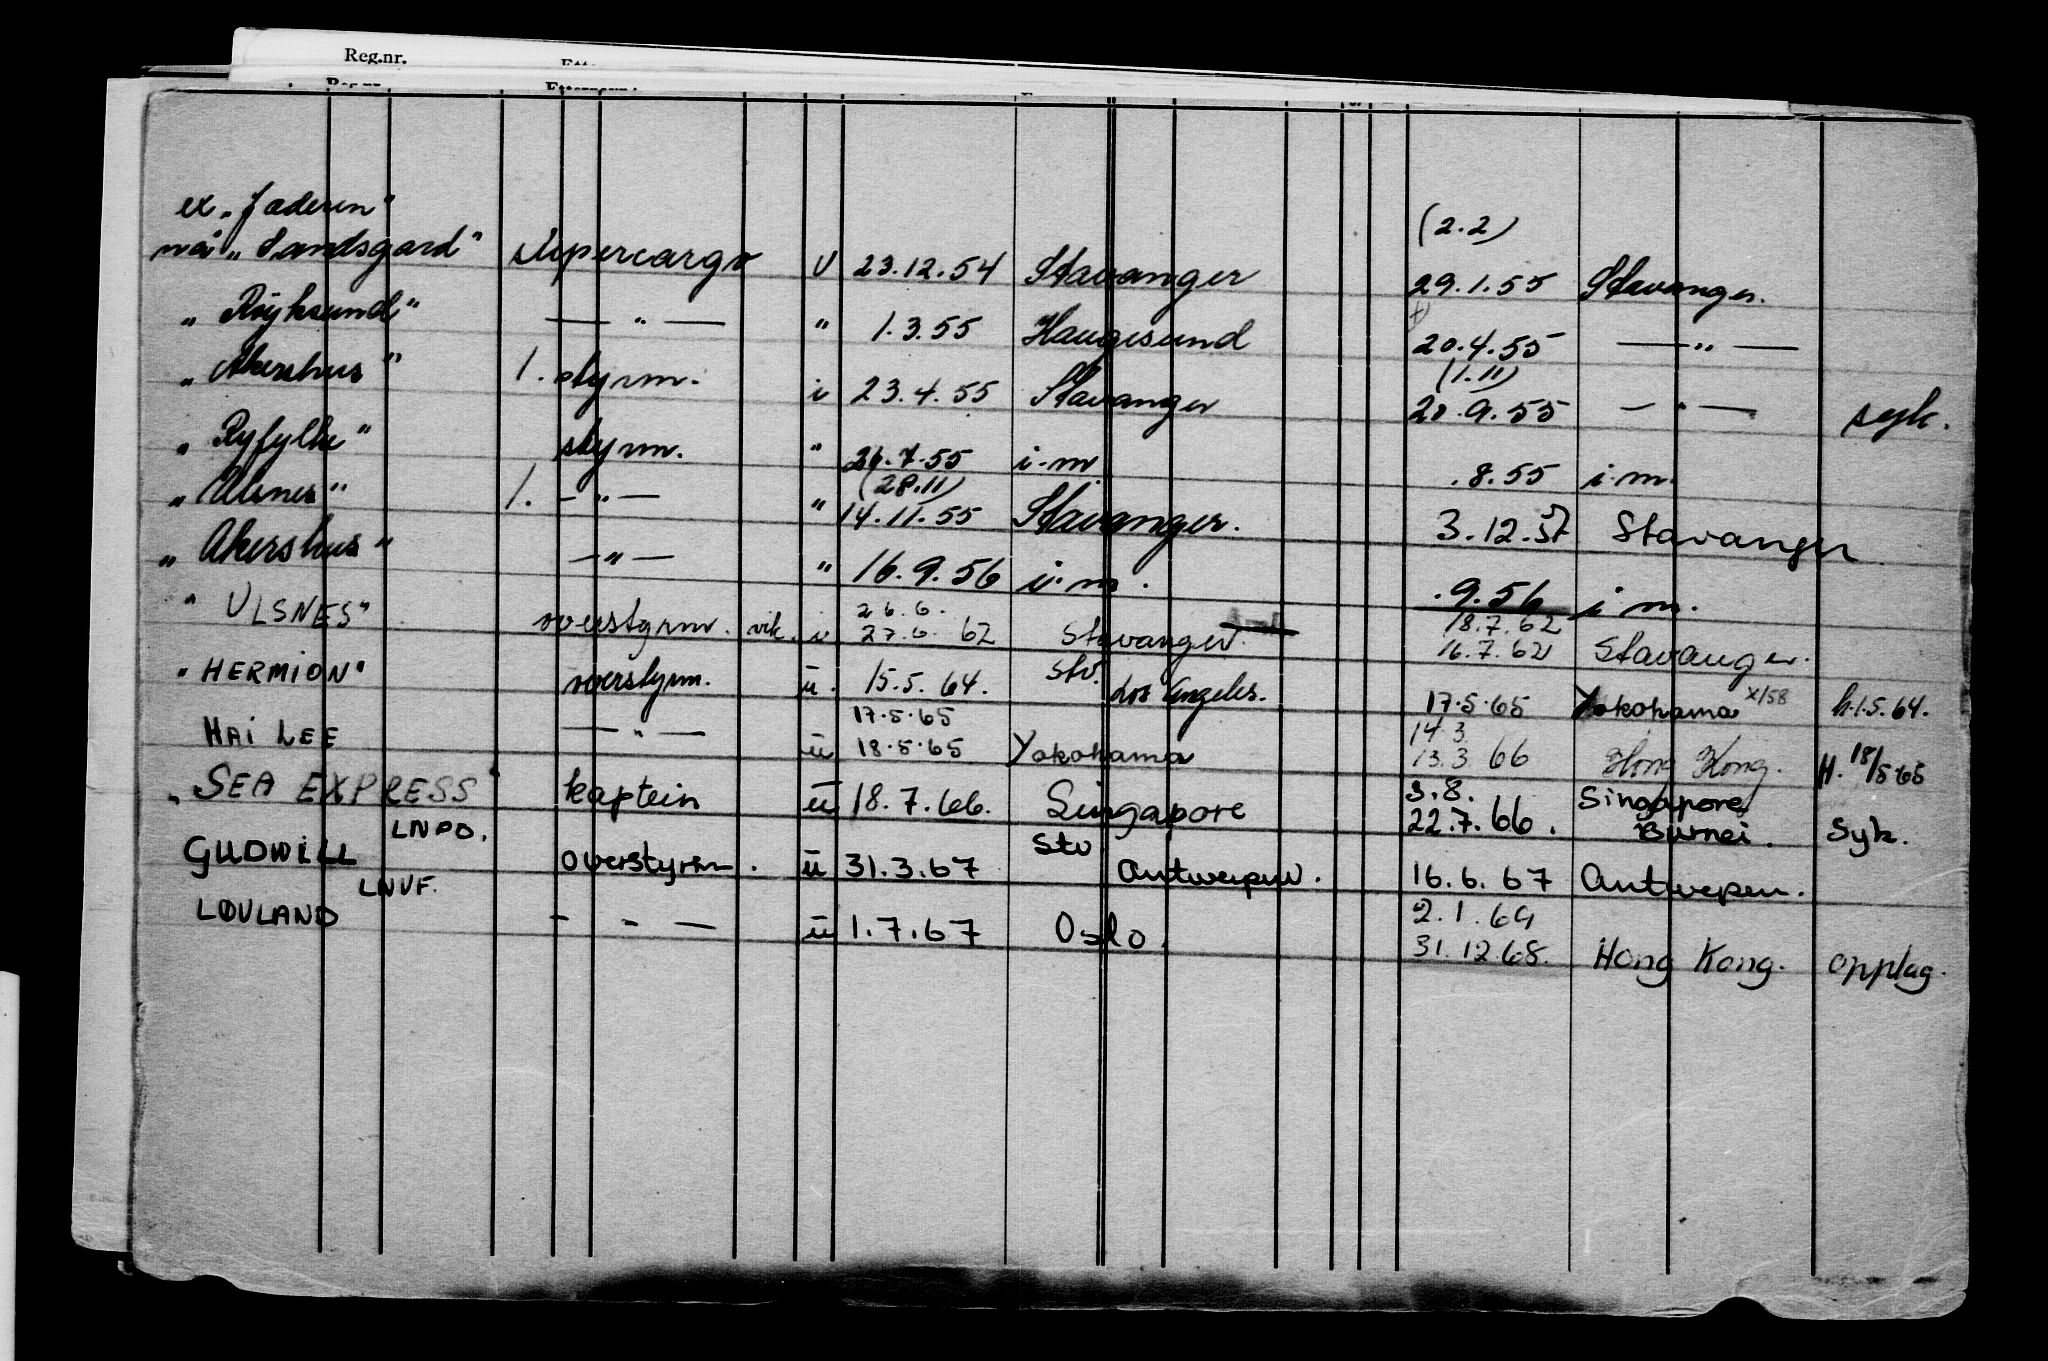 Reg.nr.
ex „Jæderen"
(2.2)
nå „Sandsgard" Supercargo v 23.12.54 Stavanger 29.1.55 Stavanger.
„Røyksund" — " — " 1.3.55 Haugesund 20.4.55 — " —
(1.11)
„Akershus" 1. styrm. i 23.4.55 Stavanger 20.9.55 — " — syk.
„Ryfylke" styrm. " 26.7.55 i.m .8.55 i.m.
(28.11)
„Ulsnes" 1. — " — " 14.11.55 Stavanger. 3.12.57 Stavanger
„Akershus" — " — " 16.9.56 i.m. .9.56 i m.
26.6. 18.7.62
" ULSNES" overstyrm. vik. i 27.6.62 Stavanger. 16.7.62 Stavanger.
"HERMION" overstyrm. ü. 15.5.64. Stv. Los Angeles. 17.5.65 Yokohama x/58 h.1.5.64.
17.5.65 14.3.
HAI LEE — " — ü 18.5.65 Yokohama 13.3.66 Hong Kong. H. 18/5-65
3.8. Singapore
„SEA EXPRESS" kaptein ü 18.7.66. Singapore 22.7.66. Burnei. Syk.
LNPO.
GUDWILL overstyrm. ü 31.3.67 Stv Antwerpen. 16.6.67 Antwerpen.
LNVF.
2.1.69
LØVLAND - - — ü 1.7.67 Oslo. 31.12.68. Hong Kong. opplag.